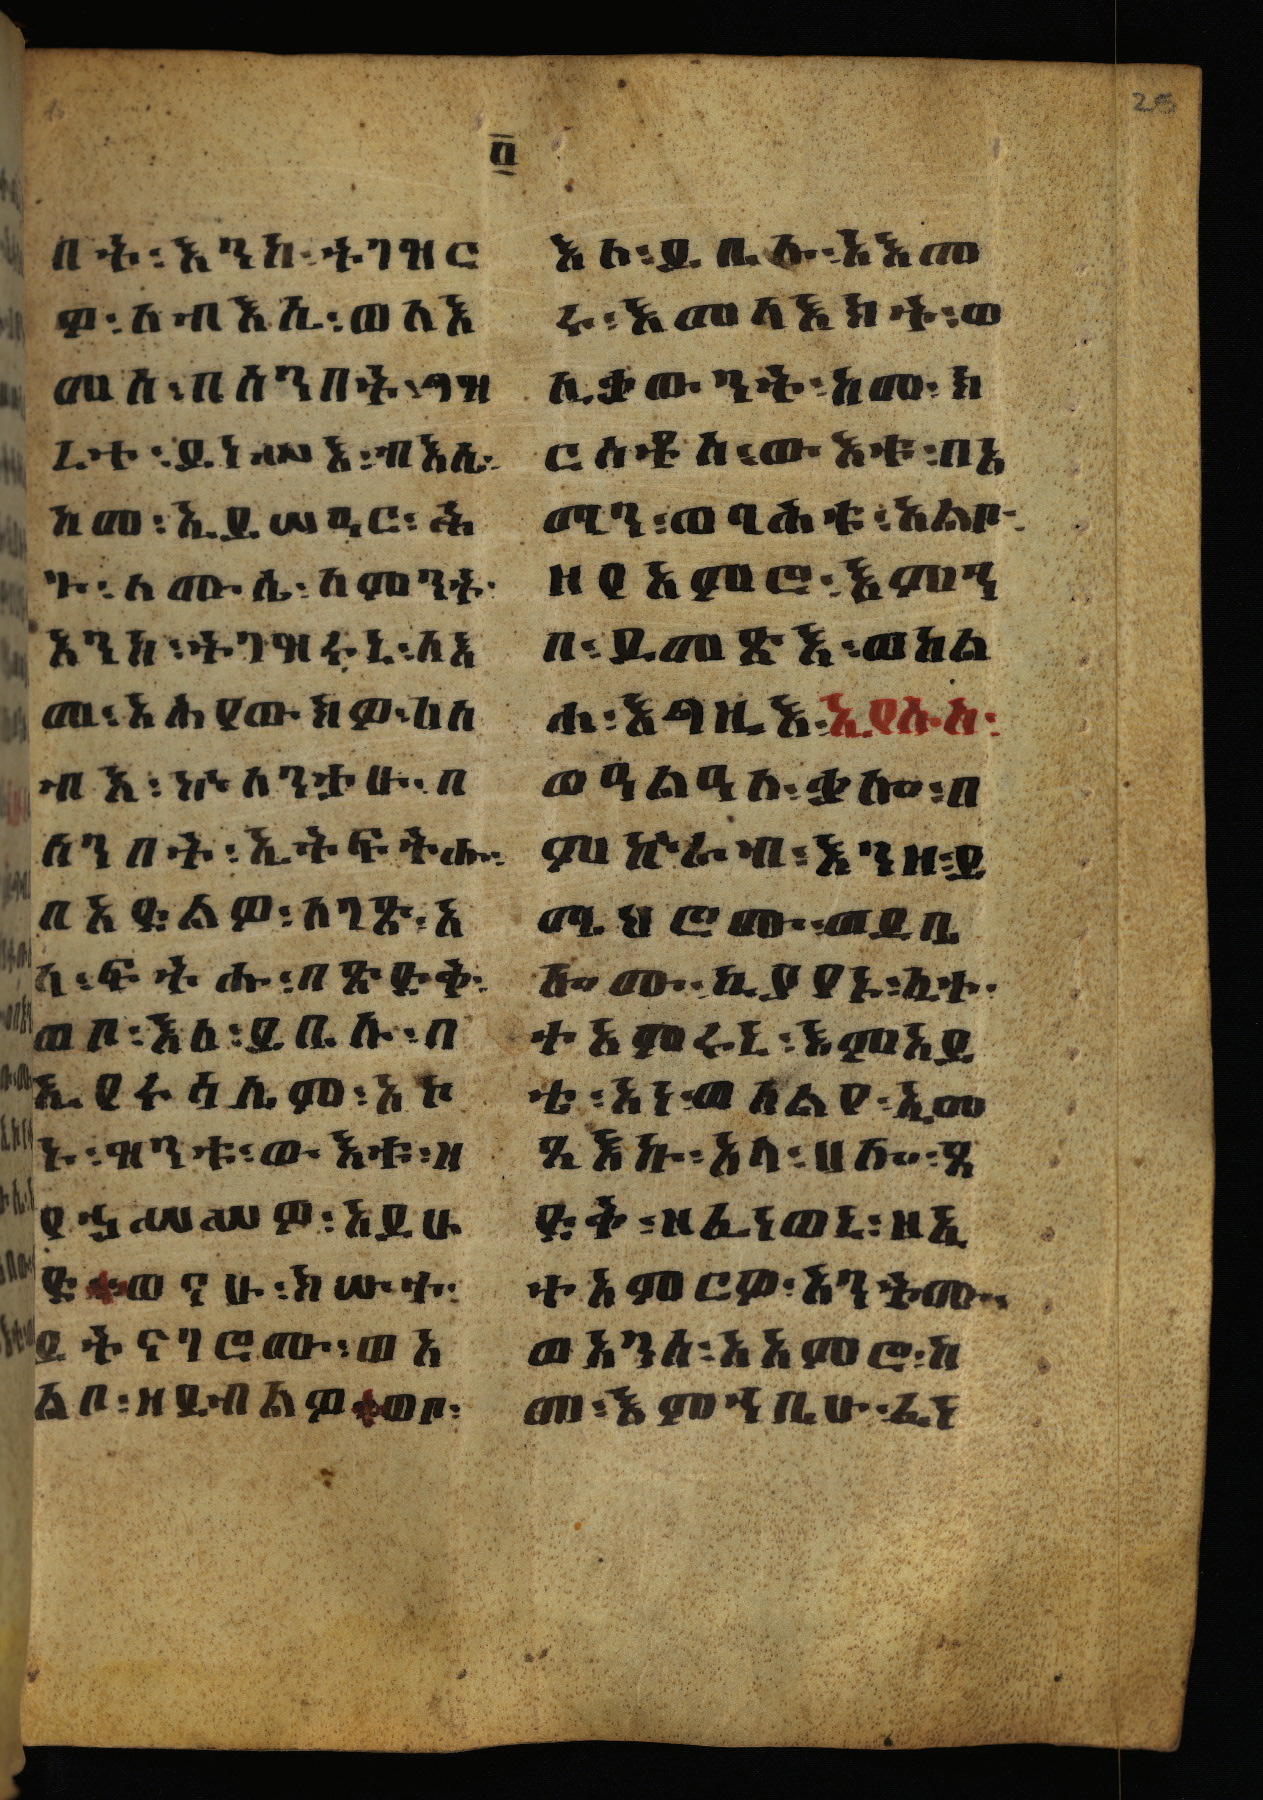 ፬
በት፡እንከ፡ትገዝር
ዎ፡ለብእሲ፡ወለእ
መሰ፡በሰንበት፡ግዝ
ረተ፡ይነሥእ፡ብእሲ፡
ከመ፡ኢይሠዓር፡ሕ
ጉ፡ለሙሴ፡ለምንት፡
እንከ፡ትገዝሩኒ፡ለእ
መ፡አሕየውክዎ፡ለለ
ብእ፡ኵለንታሁ፡በ
ሰንበት፡ኢትፍትሑ፡
በአድልዎ፡ለገጽ፡አ
ላ፡ፍትሑ፡በጽድቅ፡
ወቦ፡እለ፡ይቤሉ፡በ
ኢየሩሳሌም፡አኮ
ኑ፡ዝንቱ፡ውእቱ፡ዘ
የኃሥሥዎ፡አይሁ
ድ፡ወናሁ፡ክሡተ፡
ይትናገሮሙ፡ወአ
ልቦ፡ዘይብልዎ፡ወቦ፡
እለ፡ይቤሉ፡አእመ
ሩ፡እመላእክት፡ወ
ሊቃውንት፡ከመ፡ክ
ርስቶስ፡ውእቱ፡በአ
ማን፡ወባሕቱ፡አልቦ፡
ዘየአምሮ፡እምኀ
በ፡ይመጽእ፡ወከልሐ፡እግዚእ፡ኢየሱስ፡
ወዓልዓለ፡ቃሎ፡በ
ምኵራብ፡እንዘ፡ይ
ሜህሮሙ፡ወይቤ
ሎሙ፡ኪያየኒ፡ኢተ፡
ተአምሩኒ፡እምአይ
ቴ፡አነ፡ወለልየ፡ኢመ
ጻእኩ፡አላ፡ሀሎ፡ጻ
ድቅ፡ዘፈነወኒ፡ዘኢ
ተአምርዎ፡አንትሙ፡
ወአንሰ፡አአምሮ፡ከ
መ፡እምኀቤሁ፡ፈነ